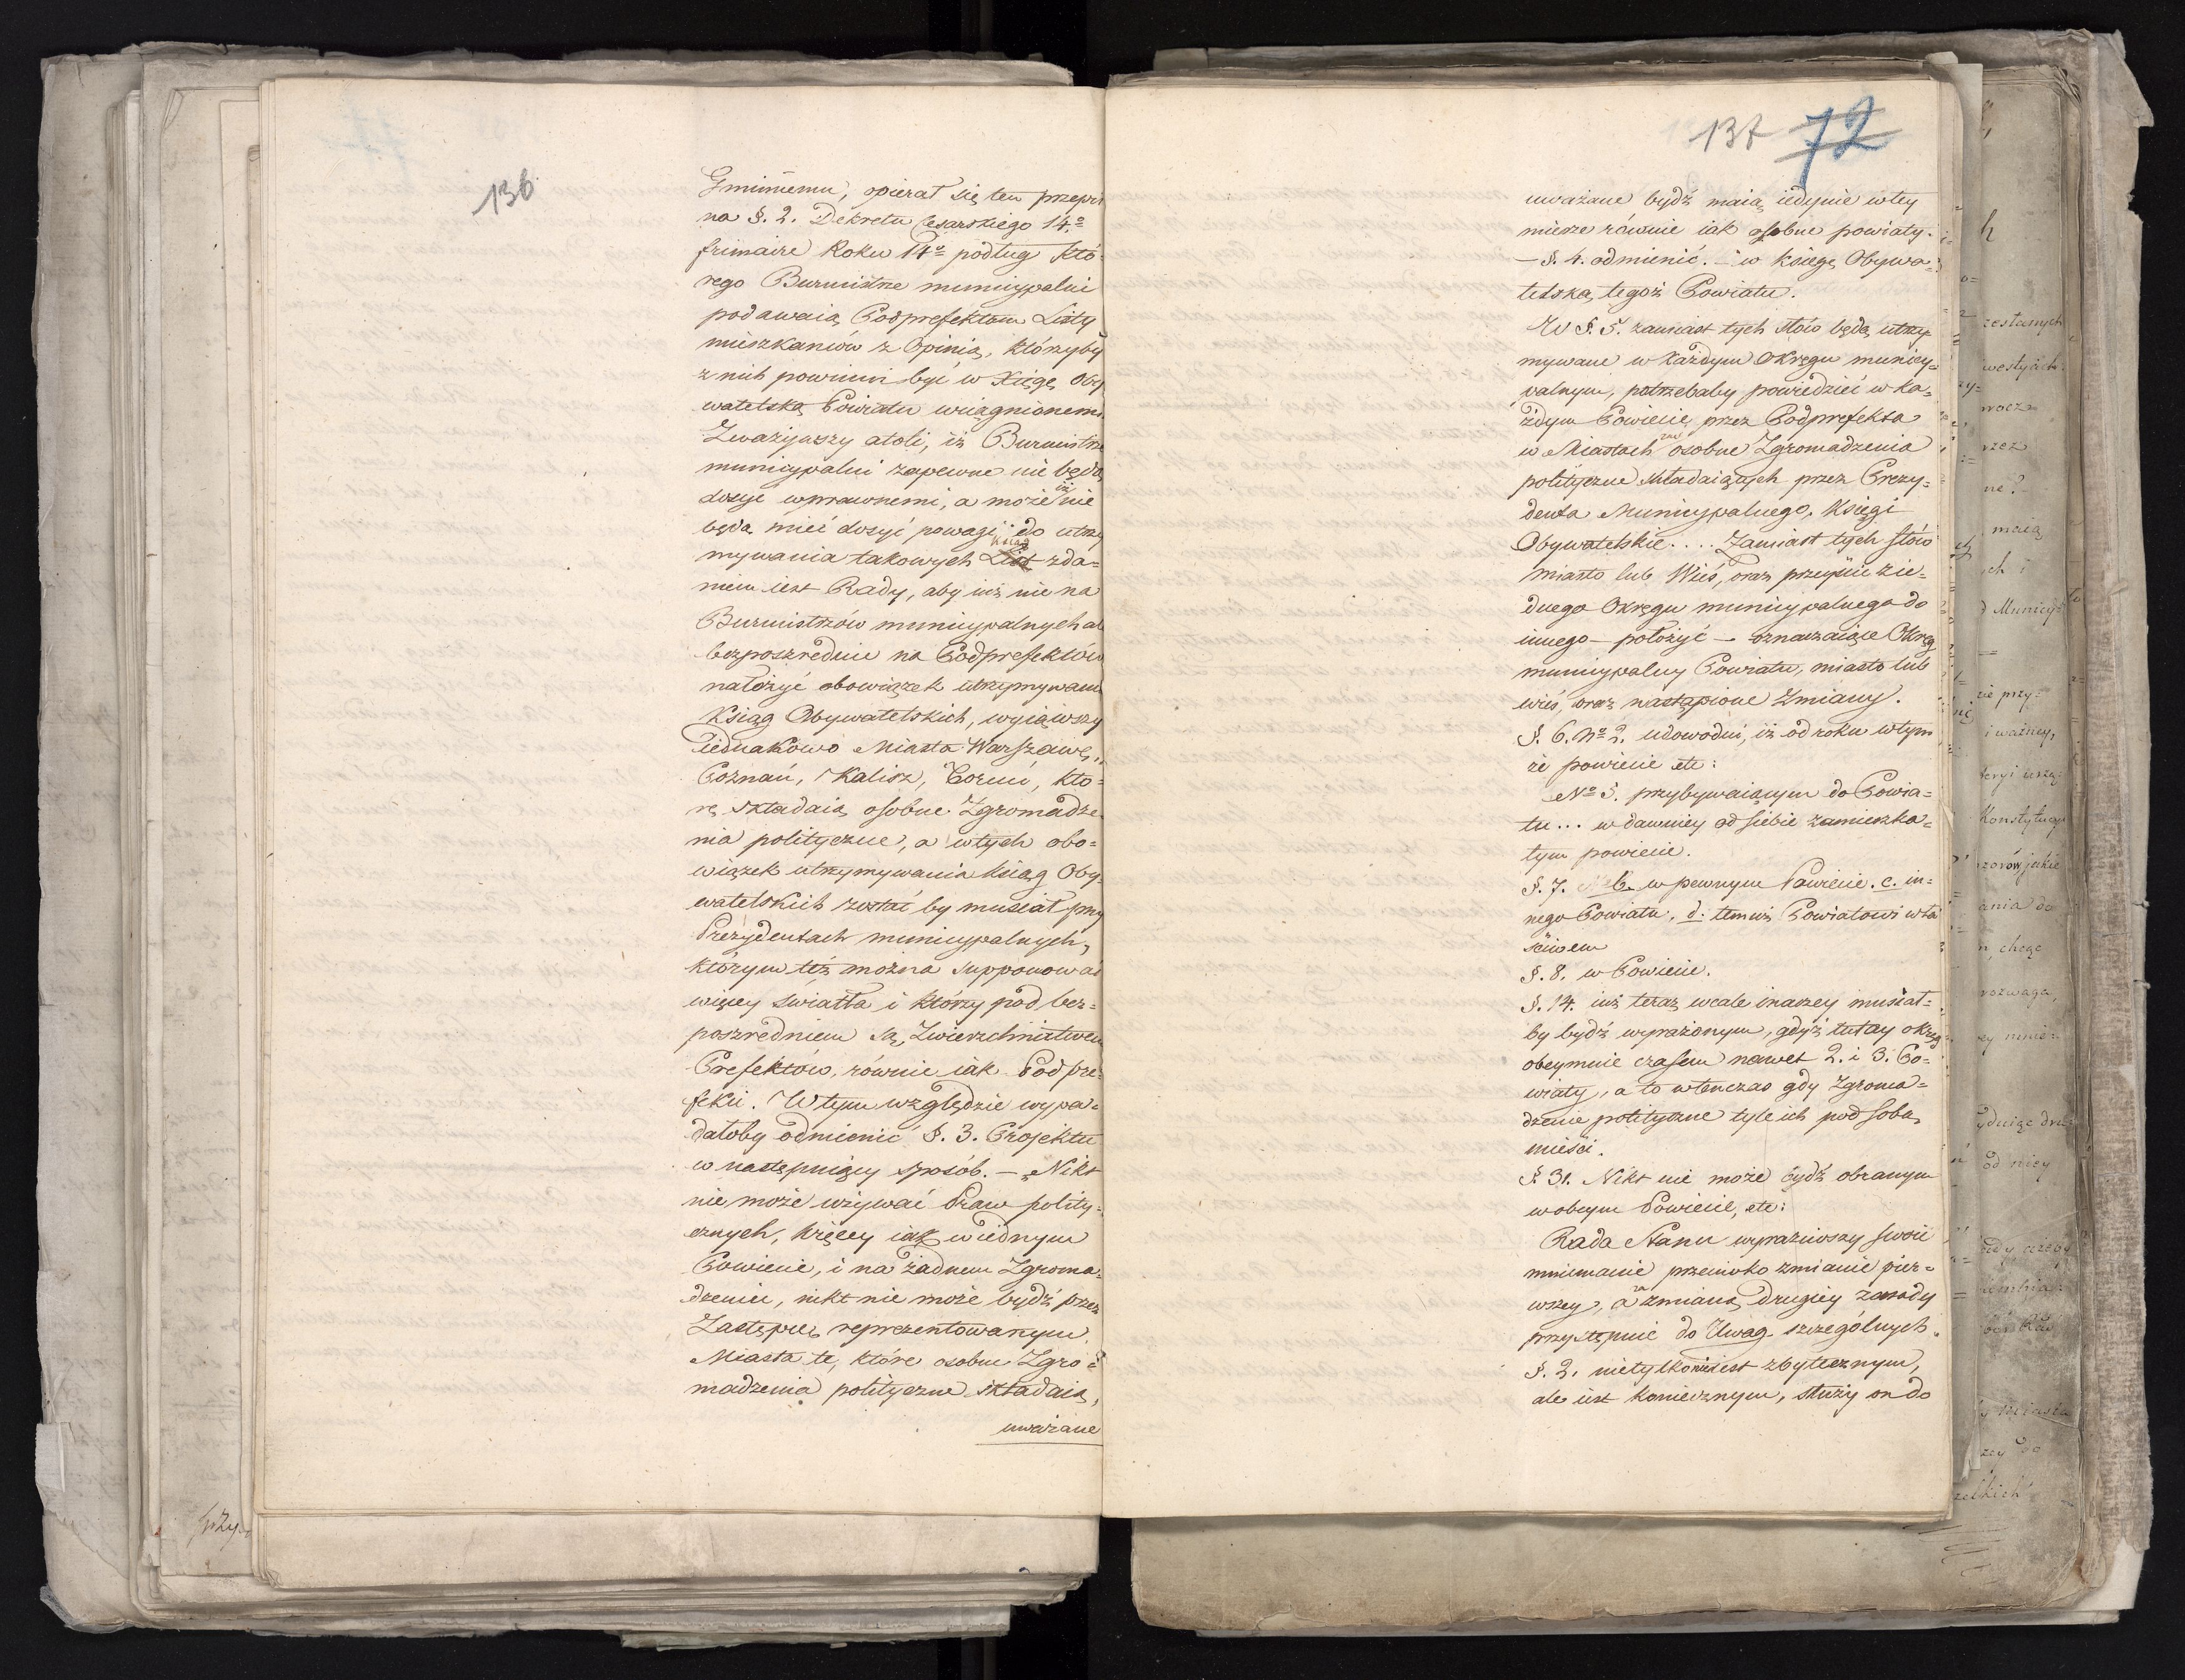 136
Gminnemu, opierał się ten przepis
na §. 2. Dekretu Cesarskiego 14º
frimaire Roku 14º podług któ-
rego Burmistrze municypalni
podawaią Podprefektom Listy
mieszkańców z Opinią, którzyby
z nich powinni być w Xięgę Oby
watelską Powiatu wciągnionemi.
Zważywszy atoli, iż Burmistrze
municypalni zapewne nie będą
dosyć wprawnemi, a może iż nie
będą mieć dosyć powagi do utrzy
mywania takowych Ksiąg zda=
niem iest Rady, aby iuż nie na
Burmistrzów municypalnych ale
bezpośrzednie na Podprefektów
nałożyć obowiązek utrzymywania
Ksiąg Obywatelskich, wyiąwszy
iednakowo Miasta Warszawę,
Poznań, Kalisz, Toruń, któ=
rę składaią osobne Zgromadze
nia polityczne, a w tych obo=
wiązek utrzymywania ksiąg Oby-
watelskich zostać by musiał przy
Prezydentach municypalnych,
którym téż można supponować
więcey światła i którzy pod bez=
pośrzedniem są Zwierzchnictwem
Prefektów, równie iak Podpre=
fekci. W tym względzie wypa=
dałoby odmienić §. 3. Projektu
w następuiący sposób. — „Nikt
nie może używać Praw polity-
cznych, więcey iak w iednym
Powiecie, i na żadnem Zgroma=
dzeniu, nikt nie może bydź przez
Zastępcę reprezentowanym.
Miasta te, które osobne Zgro=
madzenia polityczne składaią,
uważane
137 72
uważane bydź maią iedynie w tey
mierze równie iak osobne powiaty.
— §. 4. odmienić. — w księgę Obywa=
telską tegoż Powiatu.
W §. 5. zamiast tych słów będą utrzy-
mywane w każdym Okręgu municy=
palnym, potrzebaby powiedzieć w ka=
żdym Powiecie przez Podprefekta
w Miastach zaś osobne Zgromadzenia
polityczne składaiących przez Prezy=
denta Municypalnego, Księgi
Obywatelskie.... Zamiast tych słów
miasto lub Wieś, oraz przeyście z ie=
dnego Okręgu municypalnego do
innego — położyć — oznaczaiące Okręg
municypalny Powiatu, miasto lub
wieś, oraz nastąpione Zmiany.
§. 6. Nº 2. udowodni, iż od roku w tym
że powiecie etc:
Nº 3. przybywaiącym do Powia=
tu... w dawniey od siebie zamieszka=
łym powiecie.
§. 7. b. w pewnym Powiecie. c. in=
nego Powiatu. d. temuż Powiatowi wła
ściwem
§. 8. w Powiecie.
§. 14. iuż teraz wcale inaczey musiał=
by bydź wyrażonym, gdyż tutay okręg
obeymuie czasem nawet 2. i 3. Po=
wiaty, a to wtenczas gdy Zgroma=
dzenie polityczne tyle ich pod sobą
mieści.
§. 31. Nikt nie może bydź obranym
w obcym Powiecie, etc:
Rada Stanu wyraziwszy swoie
mniemanie przeciwko zmianie pier=
wszey, a za zmianą drugiey zasady
przystępuie do Uwag szczególnych.
§. 2. nietylko nie iest zbytecznym,
ale iest koniecznym, służy on do